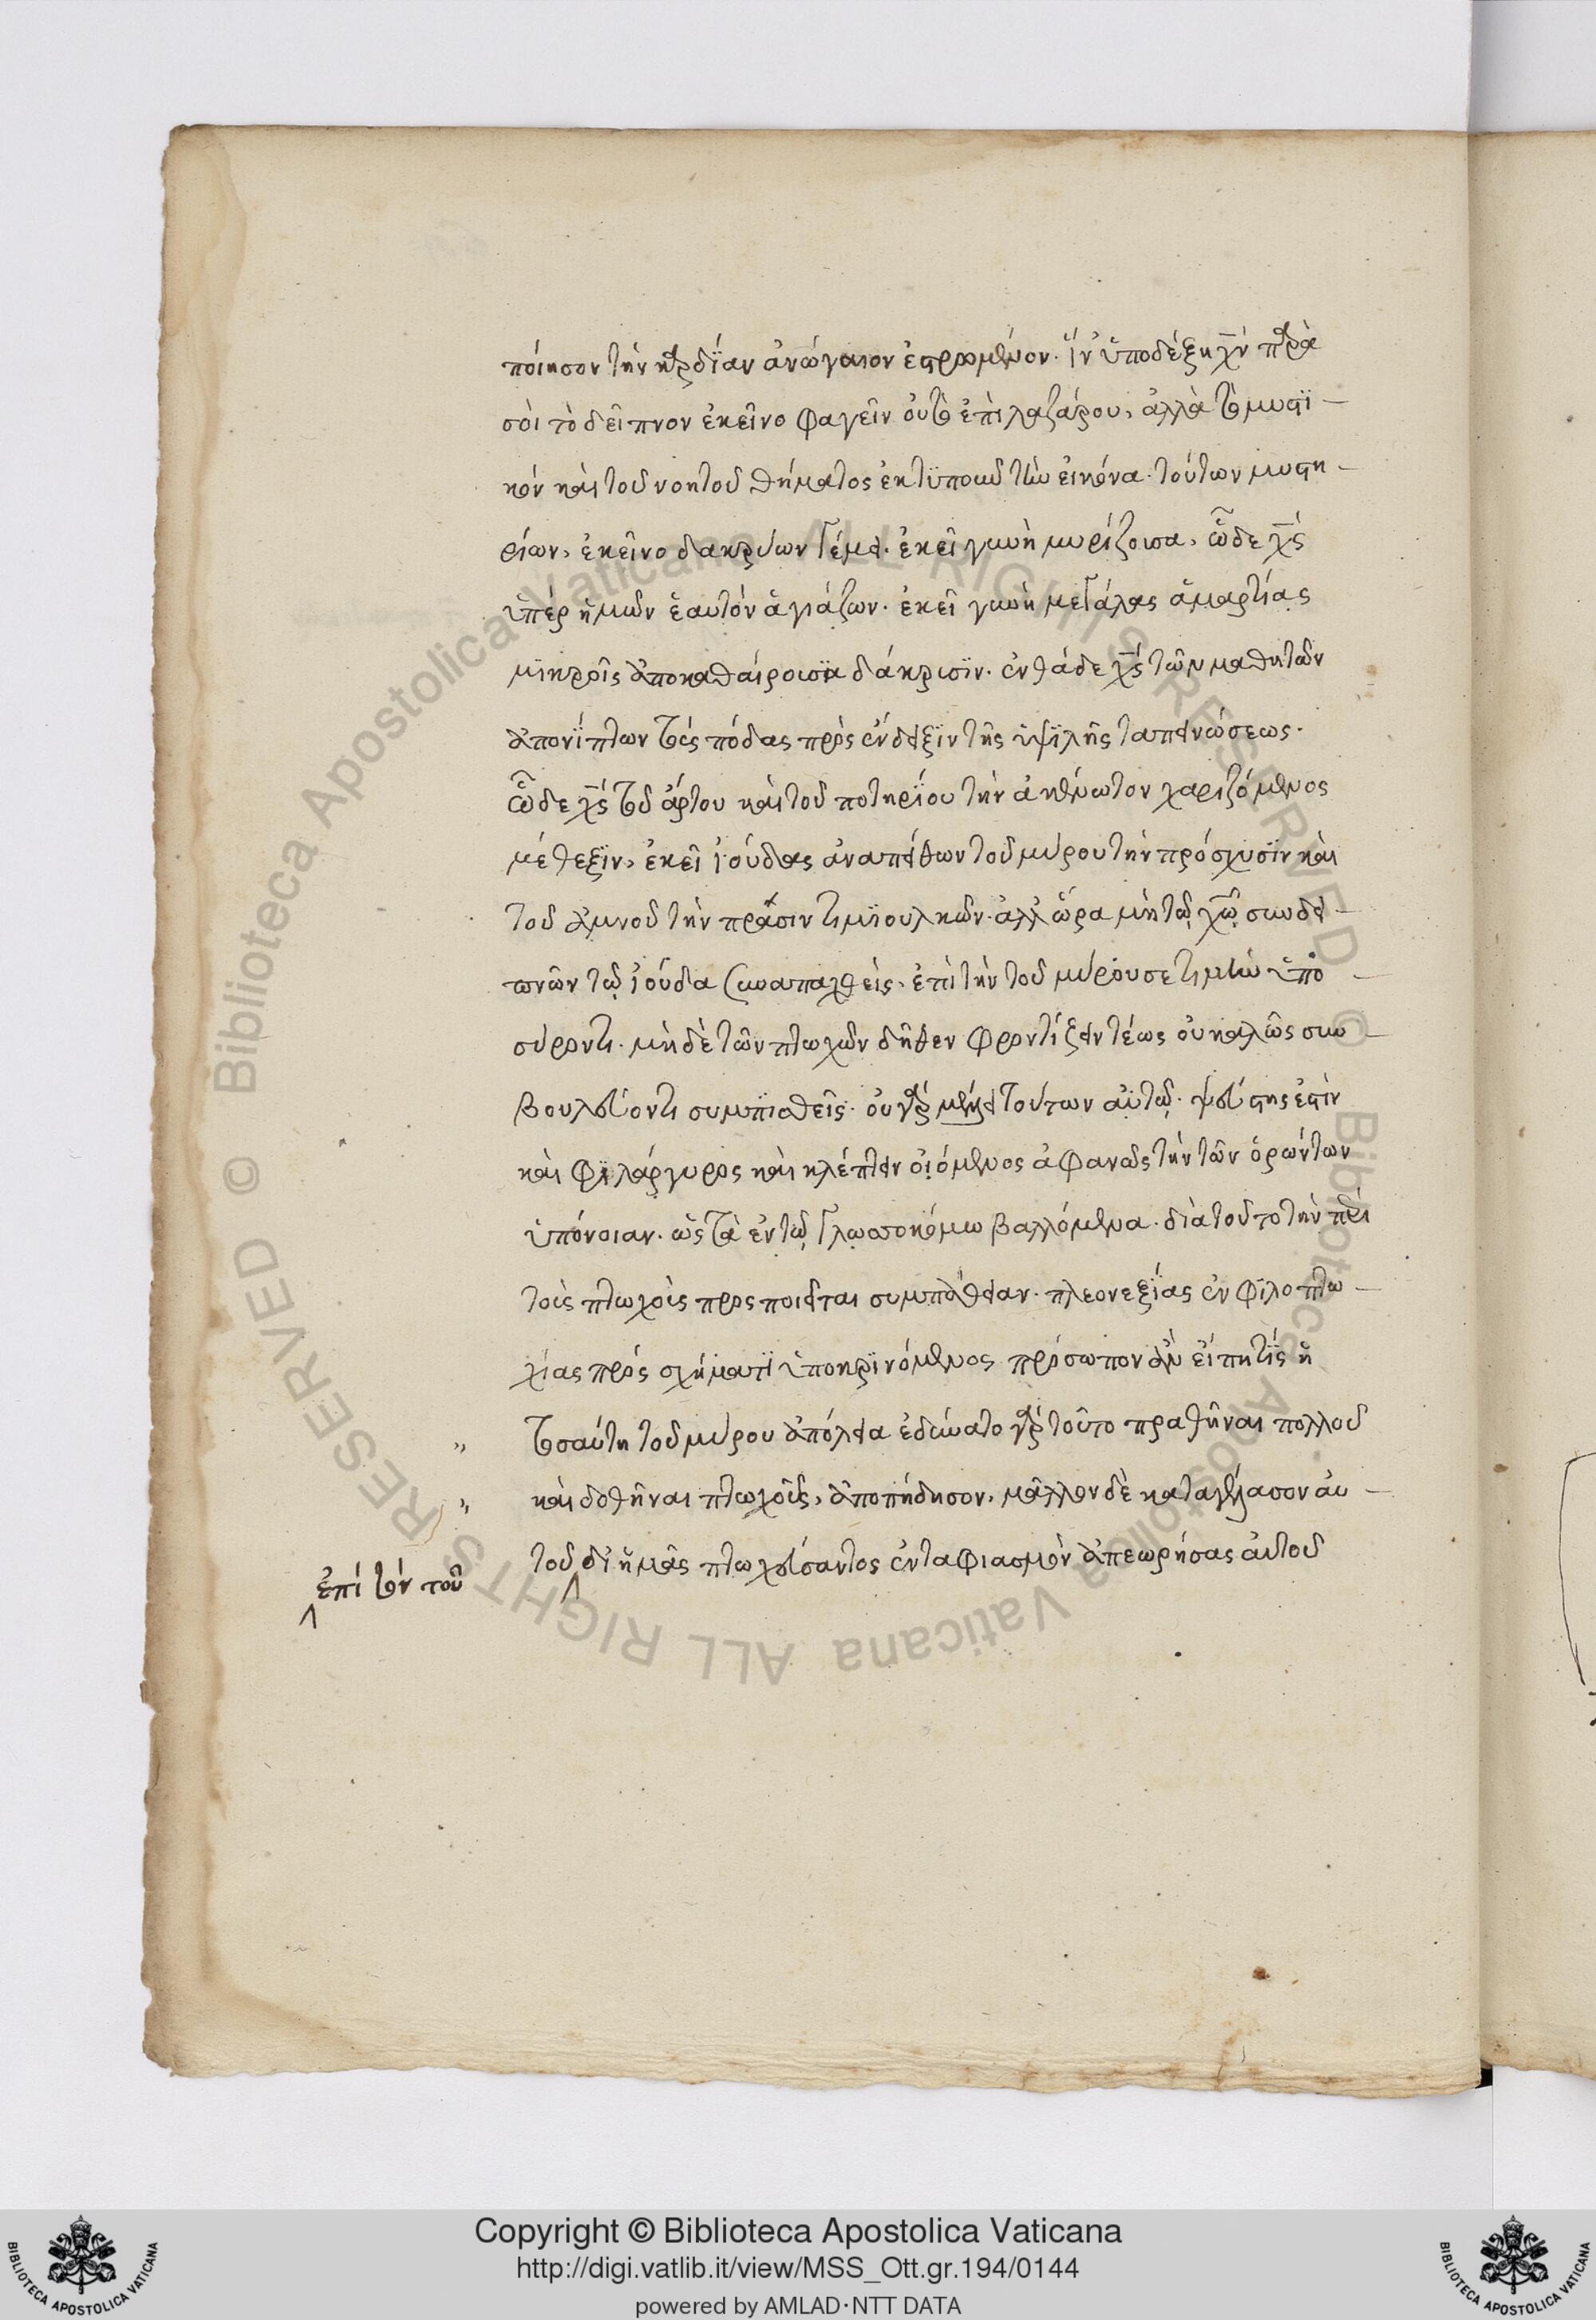 ποίησον τὴν καρδΐαν ἀνώγαιον ἐστρωμένον. ἵν' ὑποδέξῃ χν παρὰ
σοὶ τὸ δεῖπνον ἐκεῖνο φαγεῖν οὐ τὸ ἐπὶ λαζάρου, ἀλλὰ τὸ μυστϊ-
κόν καὶ τοῦ νοητοῦ θύματος ἐκτϋποῦν τὴν εἰκόνα. τούτων μυστη-
ρίων, ἐκεῖνο δακρύων γέμει. ἐκεῖ γυνὴ μυρίζουσα, ὧδε χς
ὑπὲρ ἡμῶν ἑαυτόν ἁγιάζων. ἐκεῖ γυνὴ μεγάλας ἁμαρτίας
μϊκροῖς ἀποκαθαίρουσα δάκρυσϊν. ἐνθάδε χς τῶν μαθητῶν
ἀπονΐπτων τοὺς πόδας πρὸς ἔνδειξϊν τῆς ὑψϊλῆς ταπεινώσεως.
ὧδε χς τοῦ ἄρτου καὶ τοῦ ποτηρΐου τὴν ἀκένωτον χαριζόμενος
μέθεξϊν, ἐκεῖ ἰούδας ἀναπείθων τοῦ μύρου τὴν πρόσχυσϊν καὶ
τοῦ ἀμνοῦ τὴν πρᾶσιν τιμϊουλκῶν. ἀλλ' ὅρα μὴ τῷ χῷ συνδει-
πνῶν τῷ ἰούδα συναπαχθεὶς, ἐπὶ τὴν τοῦ μύρου σε τιμὴν ὑπο-
σύροντι. μὴ δὲ τῶν πτωχῶν δῆθεν φροντίζειν τέως οὐ καλῶς συμ-
βουλεύοντι συμπϊαθεῖς. οὐ γὰρ μέλει τούτων αὐτῷ. ψεύστης ἐστὶν
καὶ φϊλάργυρος καὶ κλέπτειν οἰόμενος ἀφανῶς τὴν τῶν ὁρώντων
ὑπόνοιαν. ὡς τὰ ἐν τῷ γλωσσοκόμω βαλλόμενα. διὰ τοῦτο τὴν περὶ
τοὺς πτωχοὺς προσποιεῖται συμπάθειαν. πλεονεξΐας ἐν φϊλοπτω-
χίας πρὸς σχήματϊ ὑποκρϊνόμενος πρόσωπον ἂν εἴπῃ τϊς ἡ
" τοσαύτη τοῦ μύρου ἀπόλεια ἐδύνατο γὰρ τοῦτο πραθῆναι πολλοῦ
" καὶ δοθῆναι πτωχοῖς, ἀποπήδησον, μᾶλλον δὲ καταγέλασον αὐ-
τοῦ δι' ἡμᾶς πτωχεύσαντος ἐνταφιασμὸν ἀπεωρήσας αὐτοῦ
ἐπί τὸν τοῦ
Copyright © Biblioteca Apostolica Vaticana
http://digi.vatlib.it/view/MSS_Ott.gr.194/0144
powered by AMLAD·NTT DATA